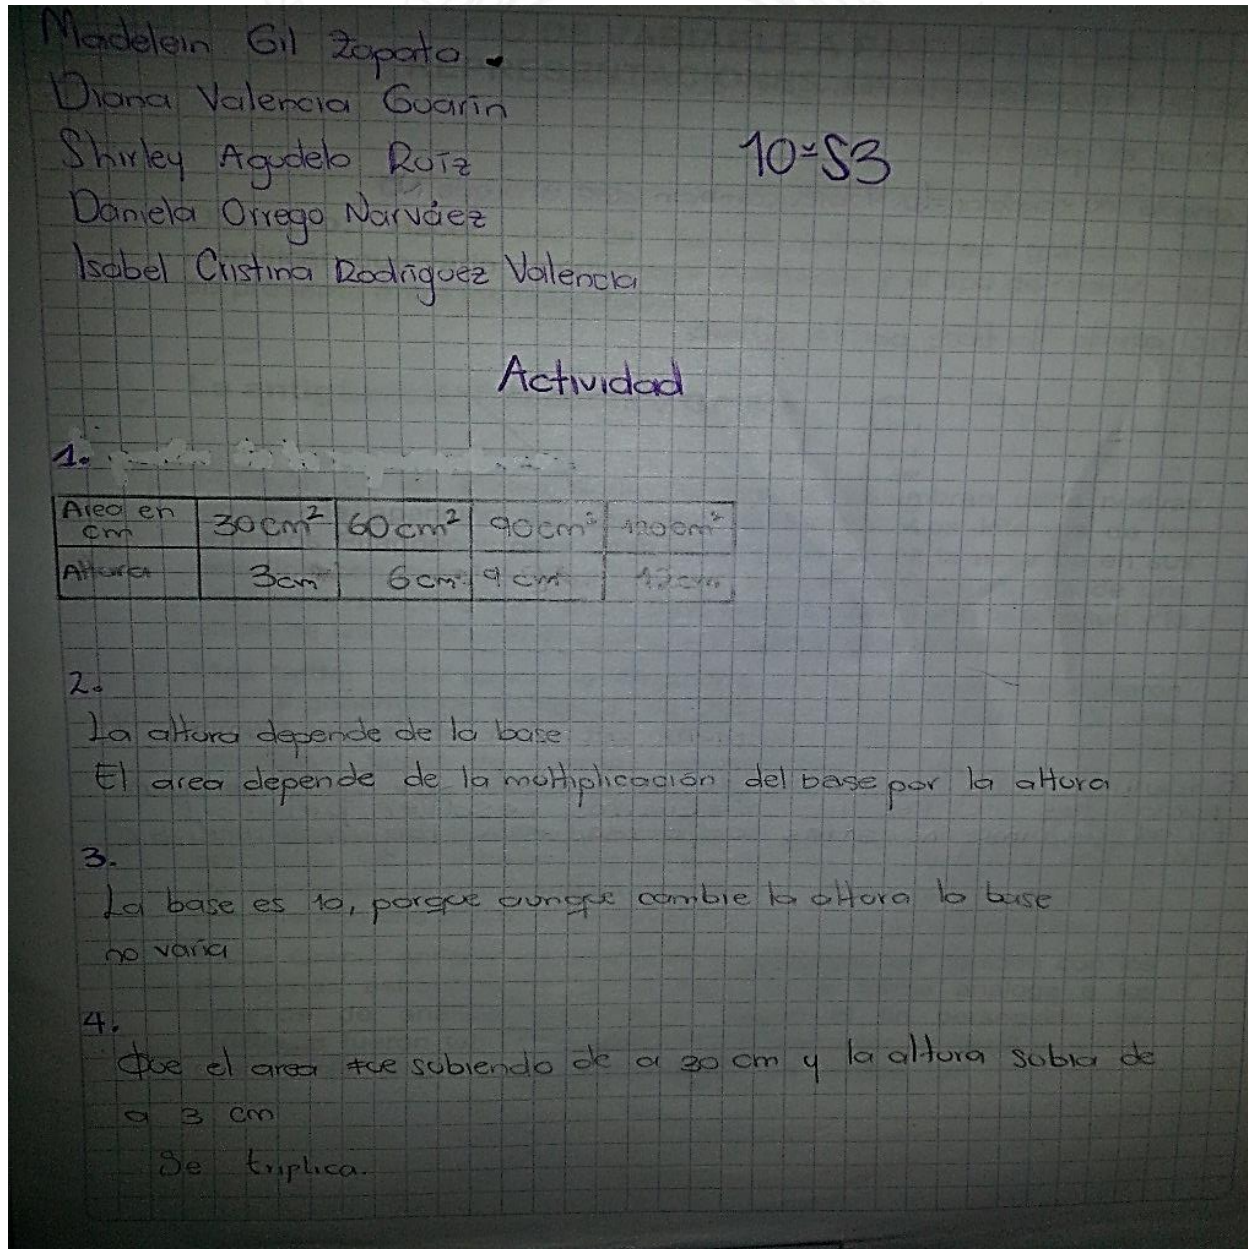 Madelein Gil Zapata.
Diana Valencia Guarín
Shirley Agudelo Ruíz
10º S3
Daniela Orrego Narváez
Isabel Cristina Rodríguez Valencia
Actividad
1.
Area en cm 30cm² 60cm² 90cm² 120cm²
Altura 3cm 6cm 9cm 12cm
2.
La altura depende de la base
El area depende de la multiplicación del base por la altura
3.
La base es 10, porque aunque cambie la altura la base
no varia
4.
Que el area fue subiendo de a 30 cm y la altura subia de
a 3 cm
Se triplica.